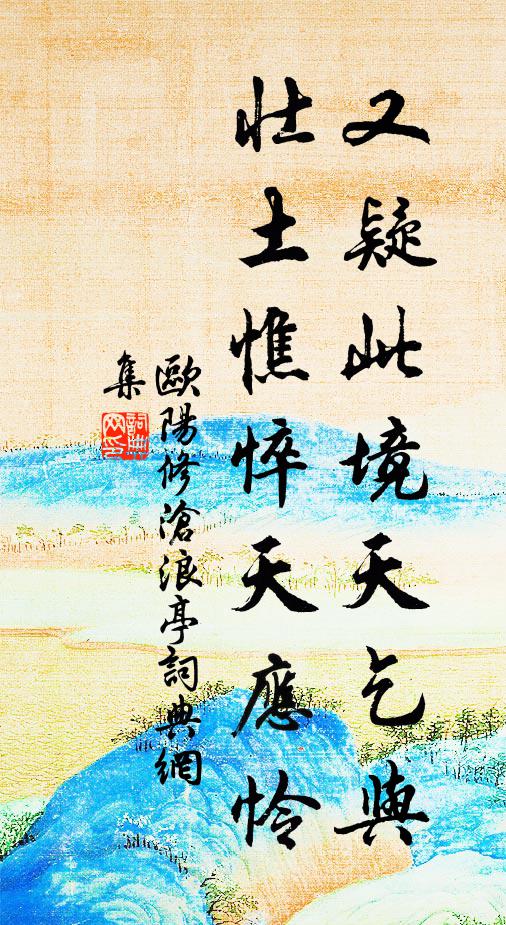 又疑此境天乞與
壯士憔悴天應怜
歐陽修滄浪亭詞典網
集
詞典網印